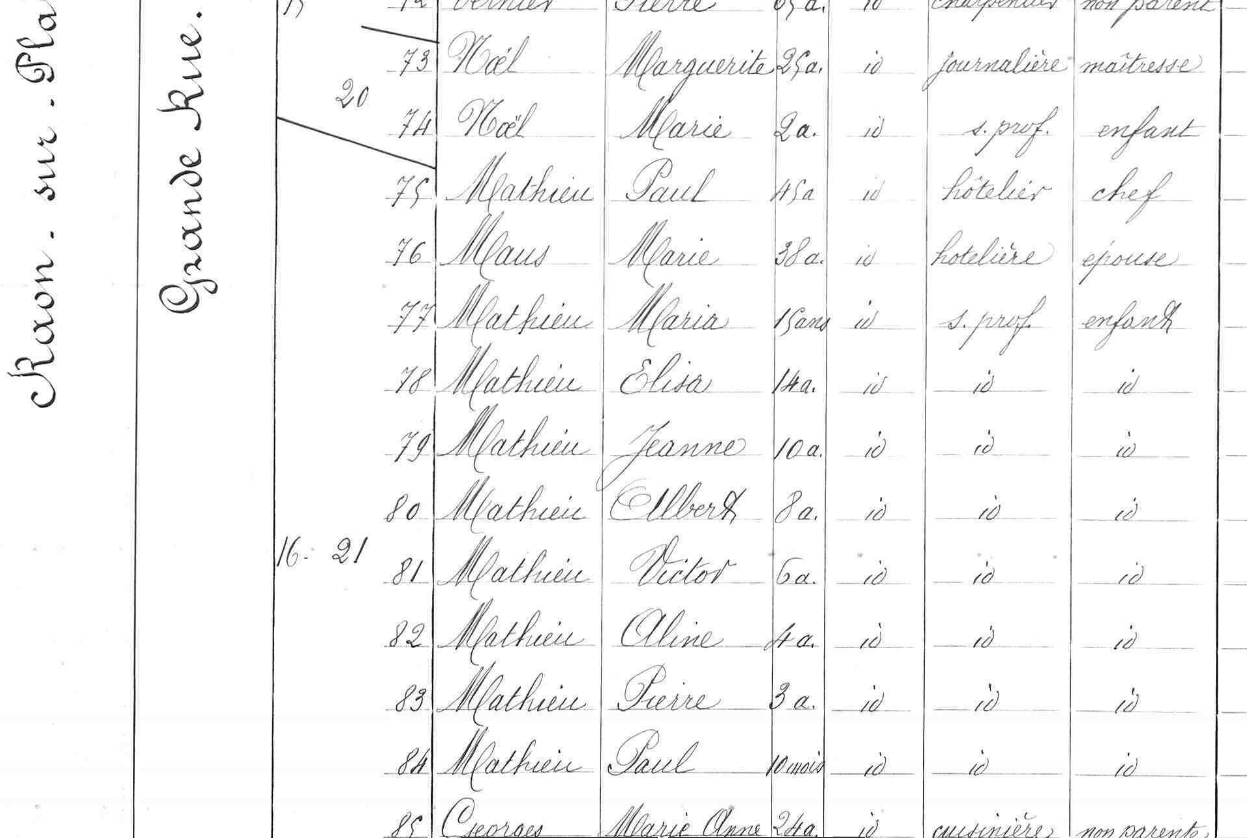 Raon. sur. Pla
Grande Rue.
15 72 Vernier Pierre 65a. id charpentier non parent
73 Noël Marguerite 25a. id journalière maîtresse
20
74 Noël Marie 2a. id s. prof. enfant
75 Mathieu Paul 45a id hôtelier chef
76 Maus Marie 38a. id hotelière épouse
77 Mathieu Maria 15ans id s. prof. enfant
78 Mathieu Elisa 14a. id id id
79 Mathieu Jeanne 10a. id id id
80 Mathieu Albert 8a. id id id
16. 21
81 Mathieu Victor 6a. id id id
82 Mathieu Aline 4a. id id id
83 Mathieu Pierre 3a. id id id
84 Mathieu Paul 10 mois id id id
85 Georges Marie Anne 24a. id cuisinière non parente